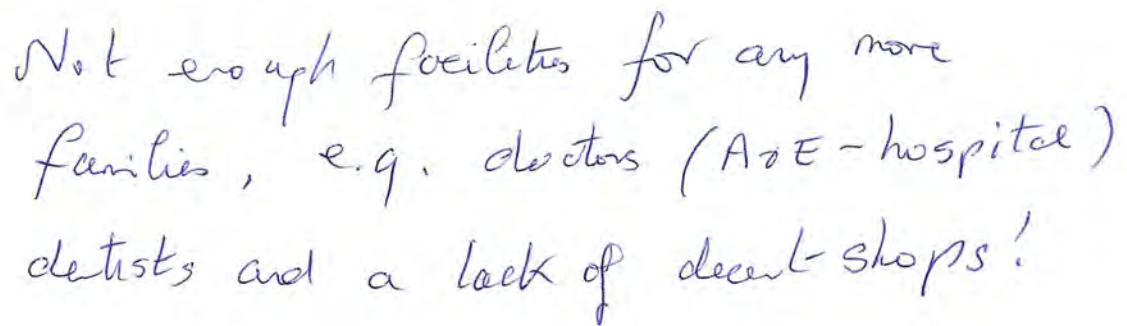 Not enough facilities for any more
families, e.g. doctors (A&E - hospital)
dentists and a lack of decent shops!